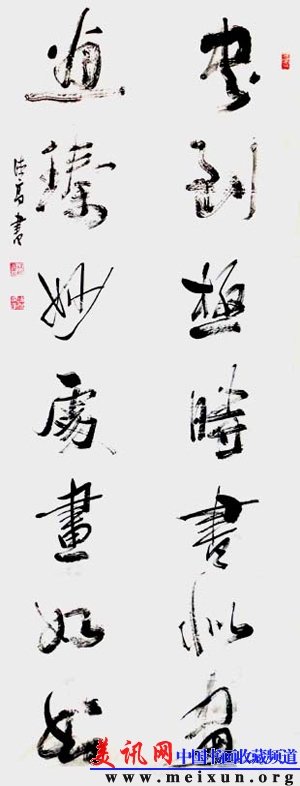 书到極時書似画
画臻妙處畫如书
書
美讯网 中国书画收藏频道
www.meixun.org